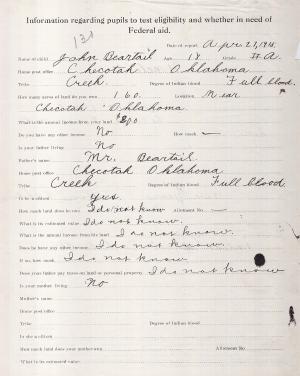 Information regarding pupils to test eligibility and whether in need of
Federal aid.
131
Date of report, Apr 27, 1915.
Name of child John Beartail Age 18
Home post office Checotah Oklahoma
Tribe Creek Degree of Indian blood Full blood.
How many acres of land do you own 160. Location Near
Checotah Oklahoma
What is the annual income from your land
Do you have any other income No How much —
Is your father living No
Father's name Mr. Beartail
Home post office Checotah Oklahoma
Tribe Creek Degree of Indian blood Full blood.
Is he a citizen yes.
How much land does he own I do not know Allotment No —
What is its estimated value I do not know.
What is the annual income from his land I do not know.
Does he have any other income I do not know.
If so, how much I do not know
Does your father pay taxes on land or personal property I do not know
Is your mother living No
Mother's name
Home post office
Tribe Degree of Indian blood
Is she a citizen
How much land does your mother own Allotment No
What is its estimated value